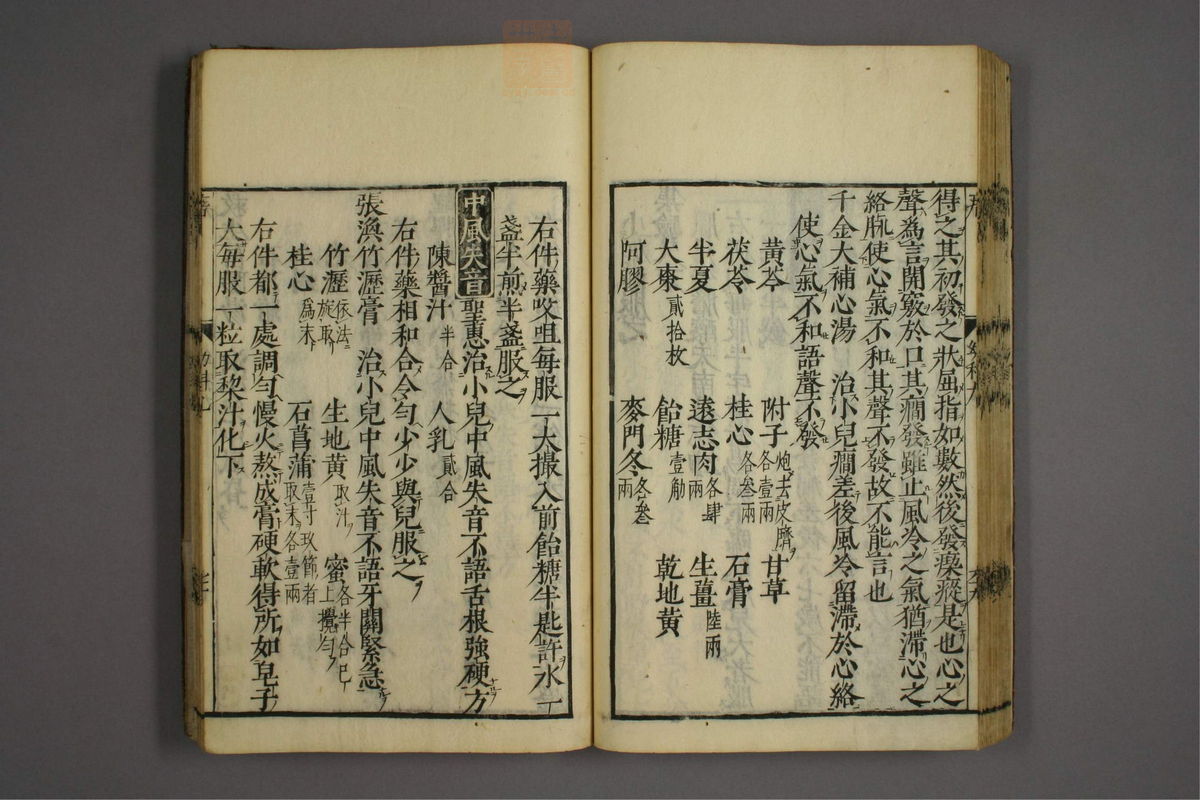 得之其初發之狀屈指如數然後發瘈瘲是也心之
聲爲言開竅於口其癎發雖止風冷之氣猶滯心之
絡脈使心氣不和其聲不發故不能言也
千金大補心湯 治小兒癎差後風冷留滯於心絡
使心氣不和語聲不發
黃芩 附子炮去皮臍各壹兩 甘草
茯苓 桂心各叁兩 石膏
半夏 遠志肉各肆兩 生薑陸兩
大棗貳拾枚 飴糖壹觔 乾地黃
阿膠 麥門冬各叁兩
右件藥㕮咀每服一大撮入前飴糖半匙許水一
盞半煎半盞服之
中風失音 聖惠治小兒中風失音不語舌根強硬方
陳醬汁半合 人乳貳合
右件藥相和合令勻少少與兒服之
張渙竹瀝膏 治小兒中風失音不語牙關緊急
竹瀝依法旋取 生地黄取汁 蜜各半合已上攪勻
桂心爲末 石菖蒲壹寸玖節者取末各壹兩
右件都一處調勻慢火熬成膏硬軟得所如皂子
大每服一粒取梨汁化下